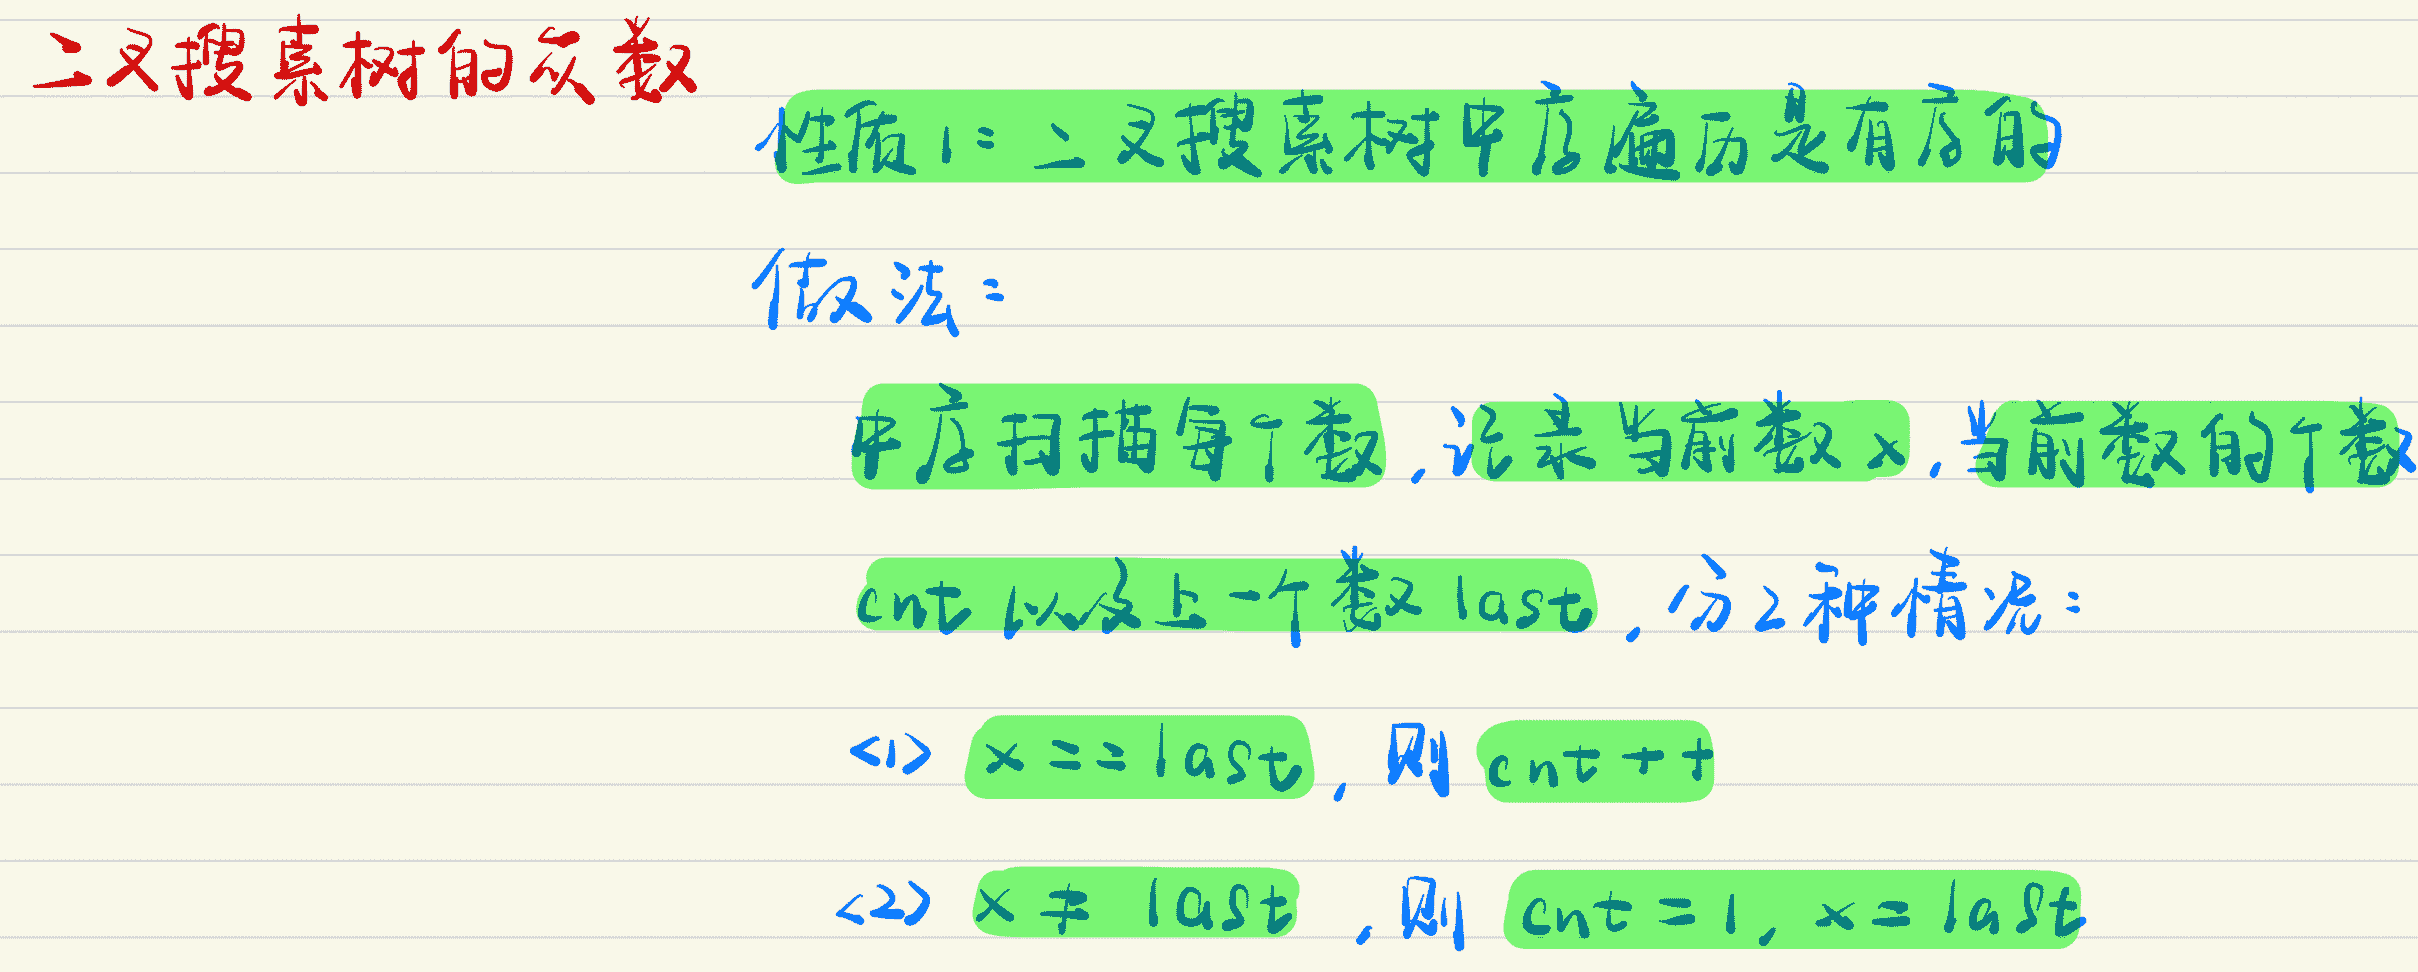 二叉搜素树的众数
性质1：二叉搜素树中序遍历是有序的
做法：
中序扫描每个数，记录当前数x，当前数的个数
cnt以及上一个数last，分2种情况：
<1> x==last，则 cnt++
<2> x≠last，则 cnt=1，x=last